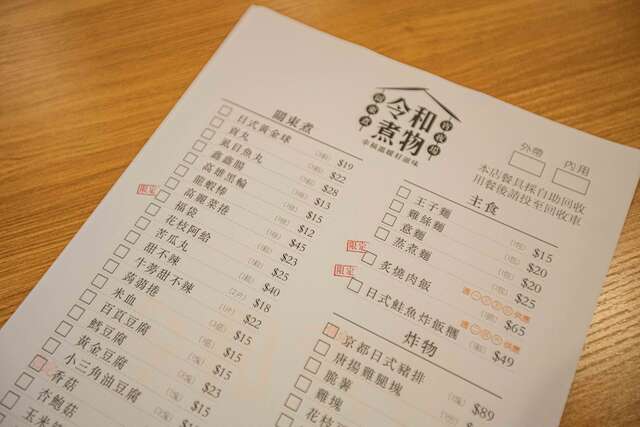 令和
煮物
幸福溫暖好滋味
外帶
內用
本店餐具採自助回收
用餐後請投至回收車
關東煮
日式黃金球
貢丸
虱目魚丸
鑫鑫腸
高雄黑輪
龍蝦棒
限定
高麗菜捲
福袋
花枝阿給
苦瓜丸
甜不辣
牛蒡甜不辣
蒟蒻捲
米血
百頁豆腐
鱈豆腐
黃金豆腐
小三角油豆腐
香菇
杏鮑菇
玉米
$19
$22
$28
$13
$15
$12
$45
$23
$25
$40
$18
$22
$15
$15
$15
$23
$15
主食
王子麵
雞絲麵
意麵
蒸煮麵
限定
炙燒肉飯
限定
日式鮭魚炸飯糰
$15
$20
$20
$25
$65
$49
炸物
京都日式豬排
唐揚雞腿塊
脆薯
雞塊
花枝
$89